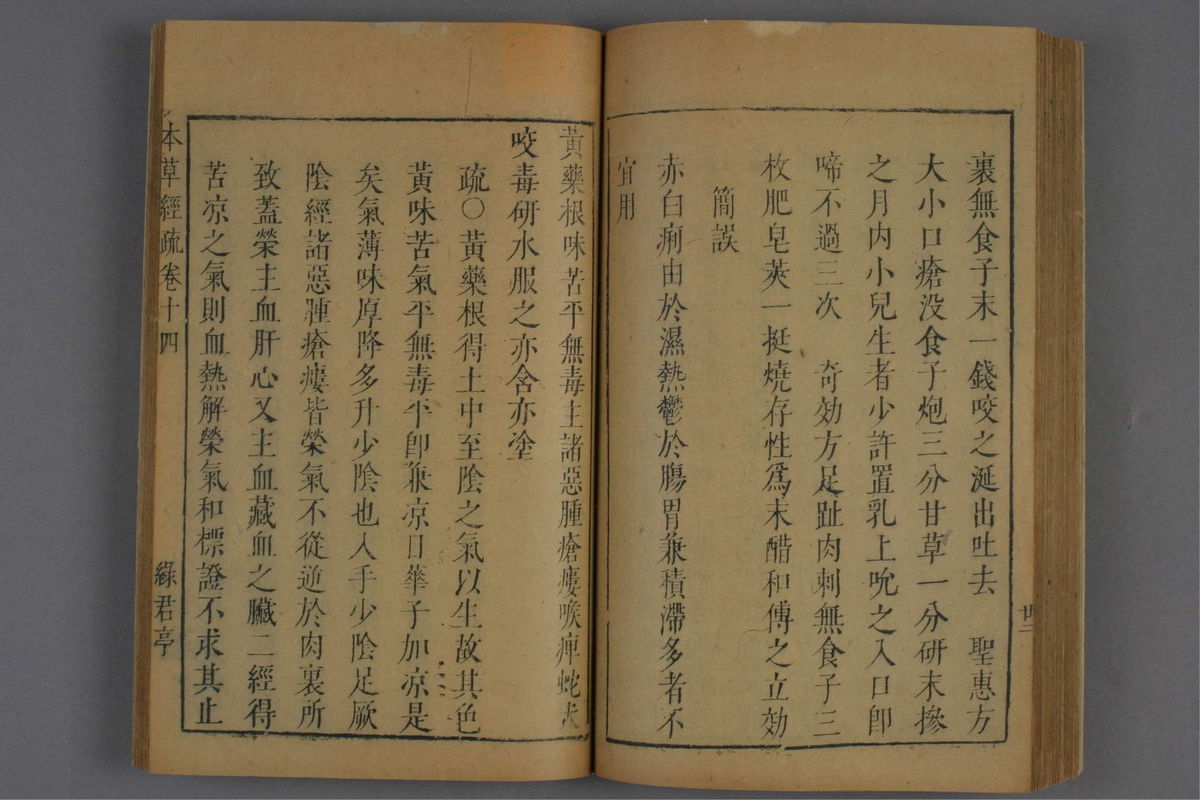 裹無食子末一錢咬之涎出吐去　聖惠方
大小口瘡没食子炮三分甘草一分研末摻
之月内小兒生者少許置乳上吮之入口卽
啼不過三次　奇効方足趾肉刺無食子三
枚肥皂莢一挺燒存性爲末醋和傅之立効
簡誤
赤白痢由於濕熱鬱於腸胃兼積滯多者不
宜用
黃藥根味苦平無毒主諸惡腫瘡瘻喉痺蛇犬
咬毒研水服之亦含亦塗
疏〇黃藥根得土中至陰之氣以生故其色
黃味苦氣平無毒平卽兼凉日華子加凉是
矣氣薄味厚降多升少陰也入手少陰足厥
陰經諸惡腫瘡瘻皆榮氣不從逆於肉裏所
致蓋榮主血肝心又主血藏血之臟二經得
苦凉之氣則血熱解榮氣和標證不求其止
本草經疏 卷十四
綠君亭